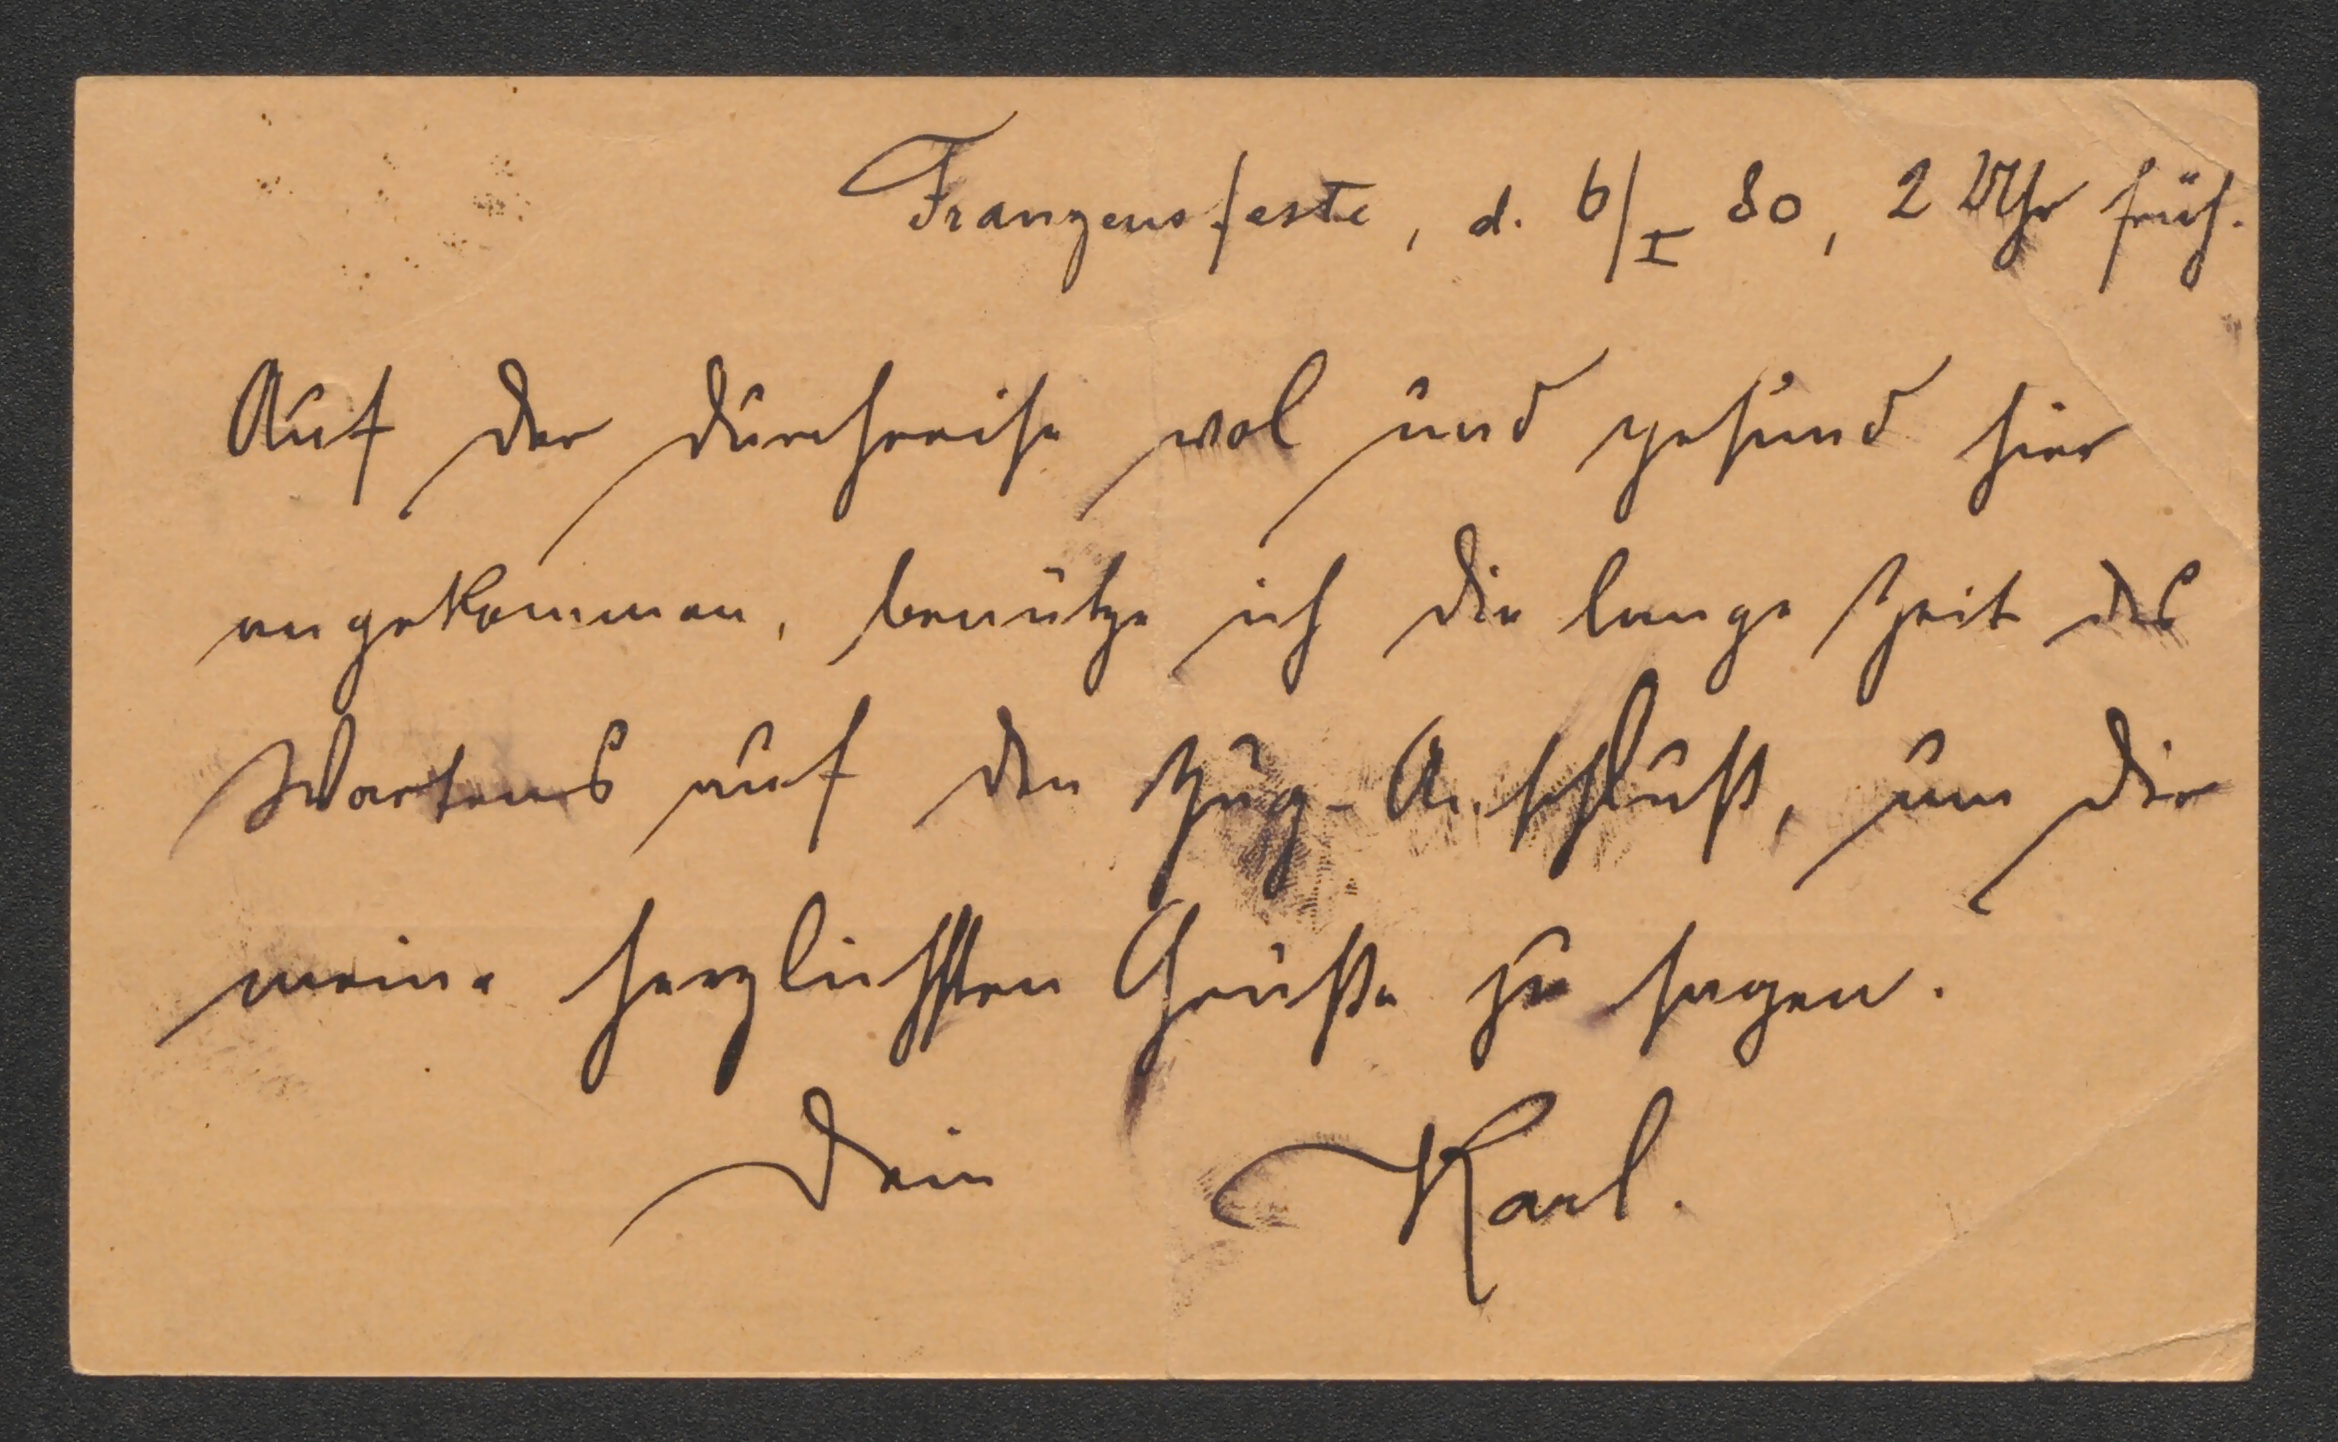 Franzensfeste, d. 6/I 80, 2 Uhr früh.
Auf der Durchreise wol und gesund hier
angekommen, benütze ich die lange Zeit des
Wartens auf den Zug-Anschluß, um Dir
meine herzlichsten Grüße zu sagen.
Dein Karl.